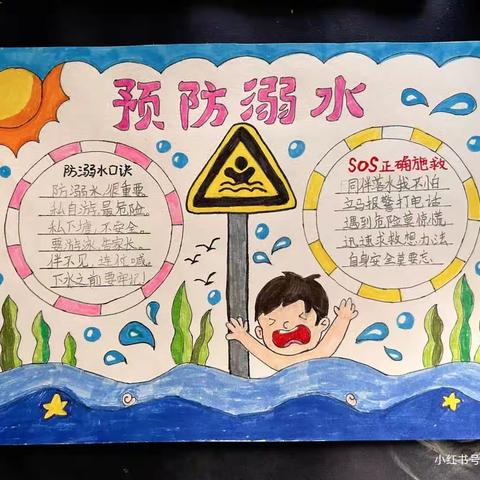 预防溺水
防溺水口诀
防溺水,很重要
私自游,最危险。
私下塘,不安全。
要游泳,告家长。
伴不见,连忙喊。
下水之前要牢记!
SOS正确施救
同伴落水我不怕
立马报警打电话
遇到危险莫惊慌
迅速求救想办法
自身安全莫要忘。
小红书号